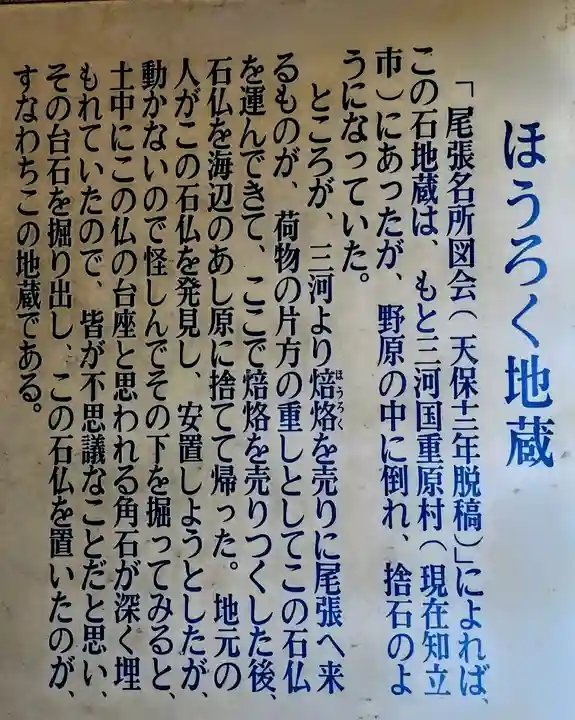 ほうろく地蔵
「尾張名所図会(天保十二年脱稿)」によれば、
この石地蔵は、もと三河国重原村(現在知立
市)にあったが、野原の中に倒れ、捨石のよ
うになっていた。
ところが、三河より焙烙を売りに尾張へ来
ほうろく
るものが、荷物の片方の重しとしてこの石仏
を運んできて、ここで焙烙を売りつくした後、
石仏を海辺のあし原に捨てて帰った。地元の
人がこの石仏を発見し、安置しようとしたが、
動かないので怪しんでその下を掘ってみると、
土中にこの仏の台座と思われる角石が深く埋
もれていたので、皆が不思議なことだと思い、
その台石を掘り出し、この石仏を置いたのが、
すなわちこの地蔵である。